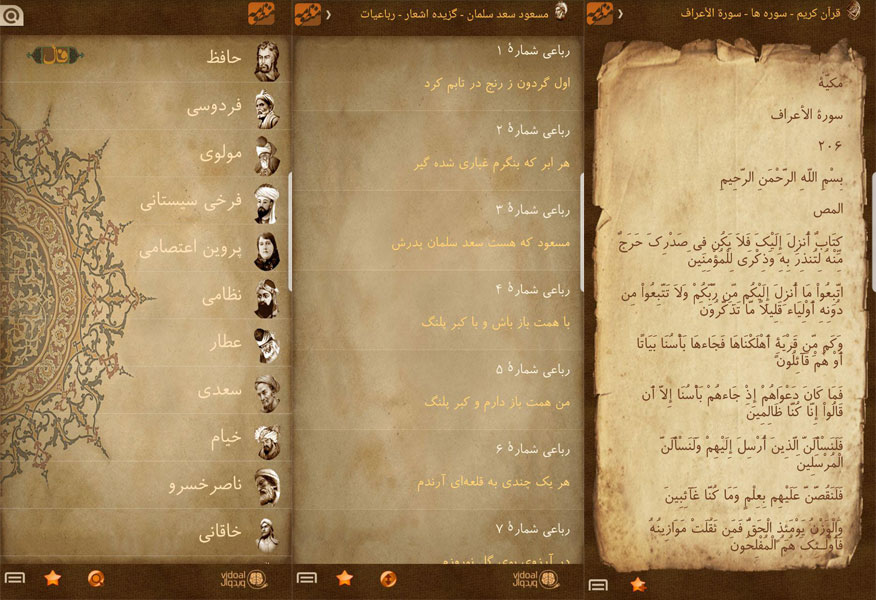 فال
حافظ
فردوسی
مولوی
فرخی سیستانی
پروین اعتصامی
نظامی
عطار
سعدی
خیام
ناصرخسرو
خاقانی
vidoal
ویدوآل
مسعود سعد سلمان - گزیده اشعار - رباعیات
رباعی شمارهٔ ۱
اول گردون ز رنج در تابم کرد
رباعی شمارهٔ ۲
هر ابر که بنگرم غباری شده گیر
رباعی شمارهٔ ۳
مسعود که هست سعد سلمان پدرش
رباعی شمارهٔ ۴
با همت باز باش و با کبر پلنگ
رباعی شمارهٔ ۵
من همت باز دارم و کبر پلنگ
رباعی شمارهٔ ۶
هر یک چندی به قلعه‌ای آرندم
رباعی شمارهٔ ۷
در آرزوی بوی گل نوروزم
vidoal
ویدوآل
قرآن کریم - سوره ها - سورة الأعراف
مکیة
سورة الأعراف
۲۰۶
بِسْمِ اللّهِ الرَّحْمَنِ الرَّحِيمِ
المص
كِتَابٌ أُنزِلَ إِلَيْكَ فَلاَ يَكُن فِي صَدْرِكَ حَرَجٌ
مِّنْهُ لِتُنذِرَ بِهِ وَذِكْرَى لِلْمُؤْمِنِينَ
اتَّبِعُواْ مَا أُنزِلَ إِلَيْكُم مِّن رَّبِّكُمْ وَلاَ تَتَّبِعُواْ مِن
دُونِهِ أَوْلِيَاء قَلِيلاً مَّا تَذَكَّرُونَ
وَكَم مِّن قَرْيَةٍ أَهْلَكْنَاهَا فَجَاءهَا بَأْسُنَا بَيَاتًا
أَوْ هُمْ قَآئِلُونَ
فَمَا كَانَ دَعْوَاهُمْ إِذْ جَاءهُمْ بَأْسُنَا إِلاَّ أَن
قَالُواْ إِنَّا كُنَّا ظَالِمِينَ
فَلَنَسْأَلَنَّ الَّذِينَ أُرْسِلَ إِلَيْهِمْ وَلَنَسْأَلَنَّ
الْمُرْسَلِينَ
فَلَنَقُصَّنَّ عَلَيْهِم بِعِلْمٍ وَمَا كُنَّا غَآئِبِينَ
وَالْوَزْنُ يَوْمَئِذٍ الْحَقُّ فَمَن ثَقُلَتْ مَوَازِينُهُ
فَأُوْلَـئِكَ هُمُ الْمُفْلِحُونَ